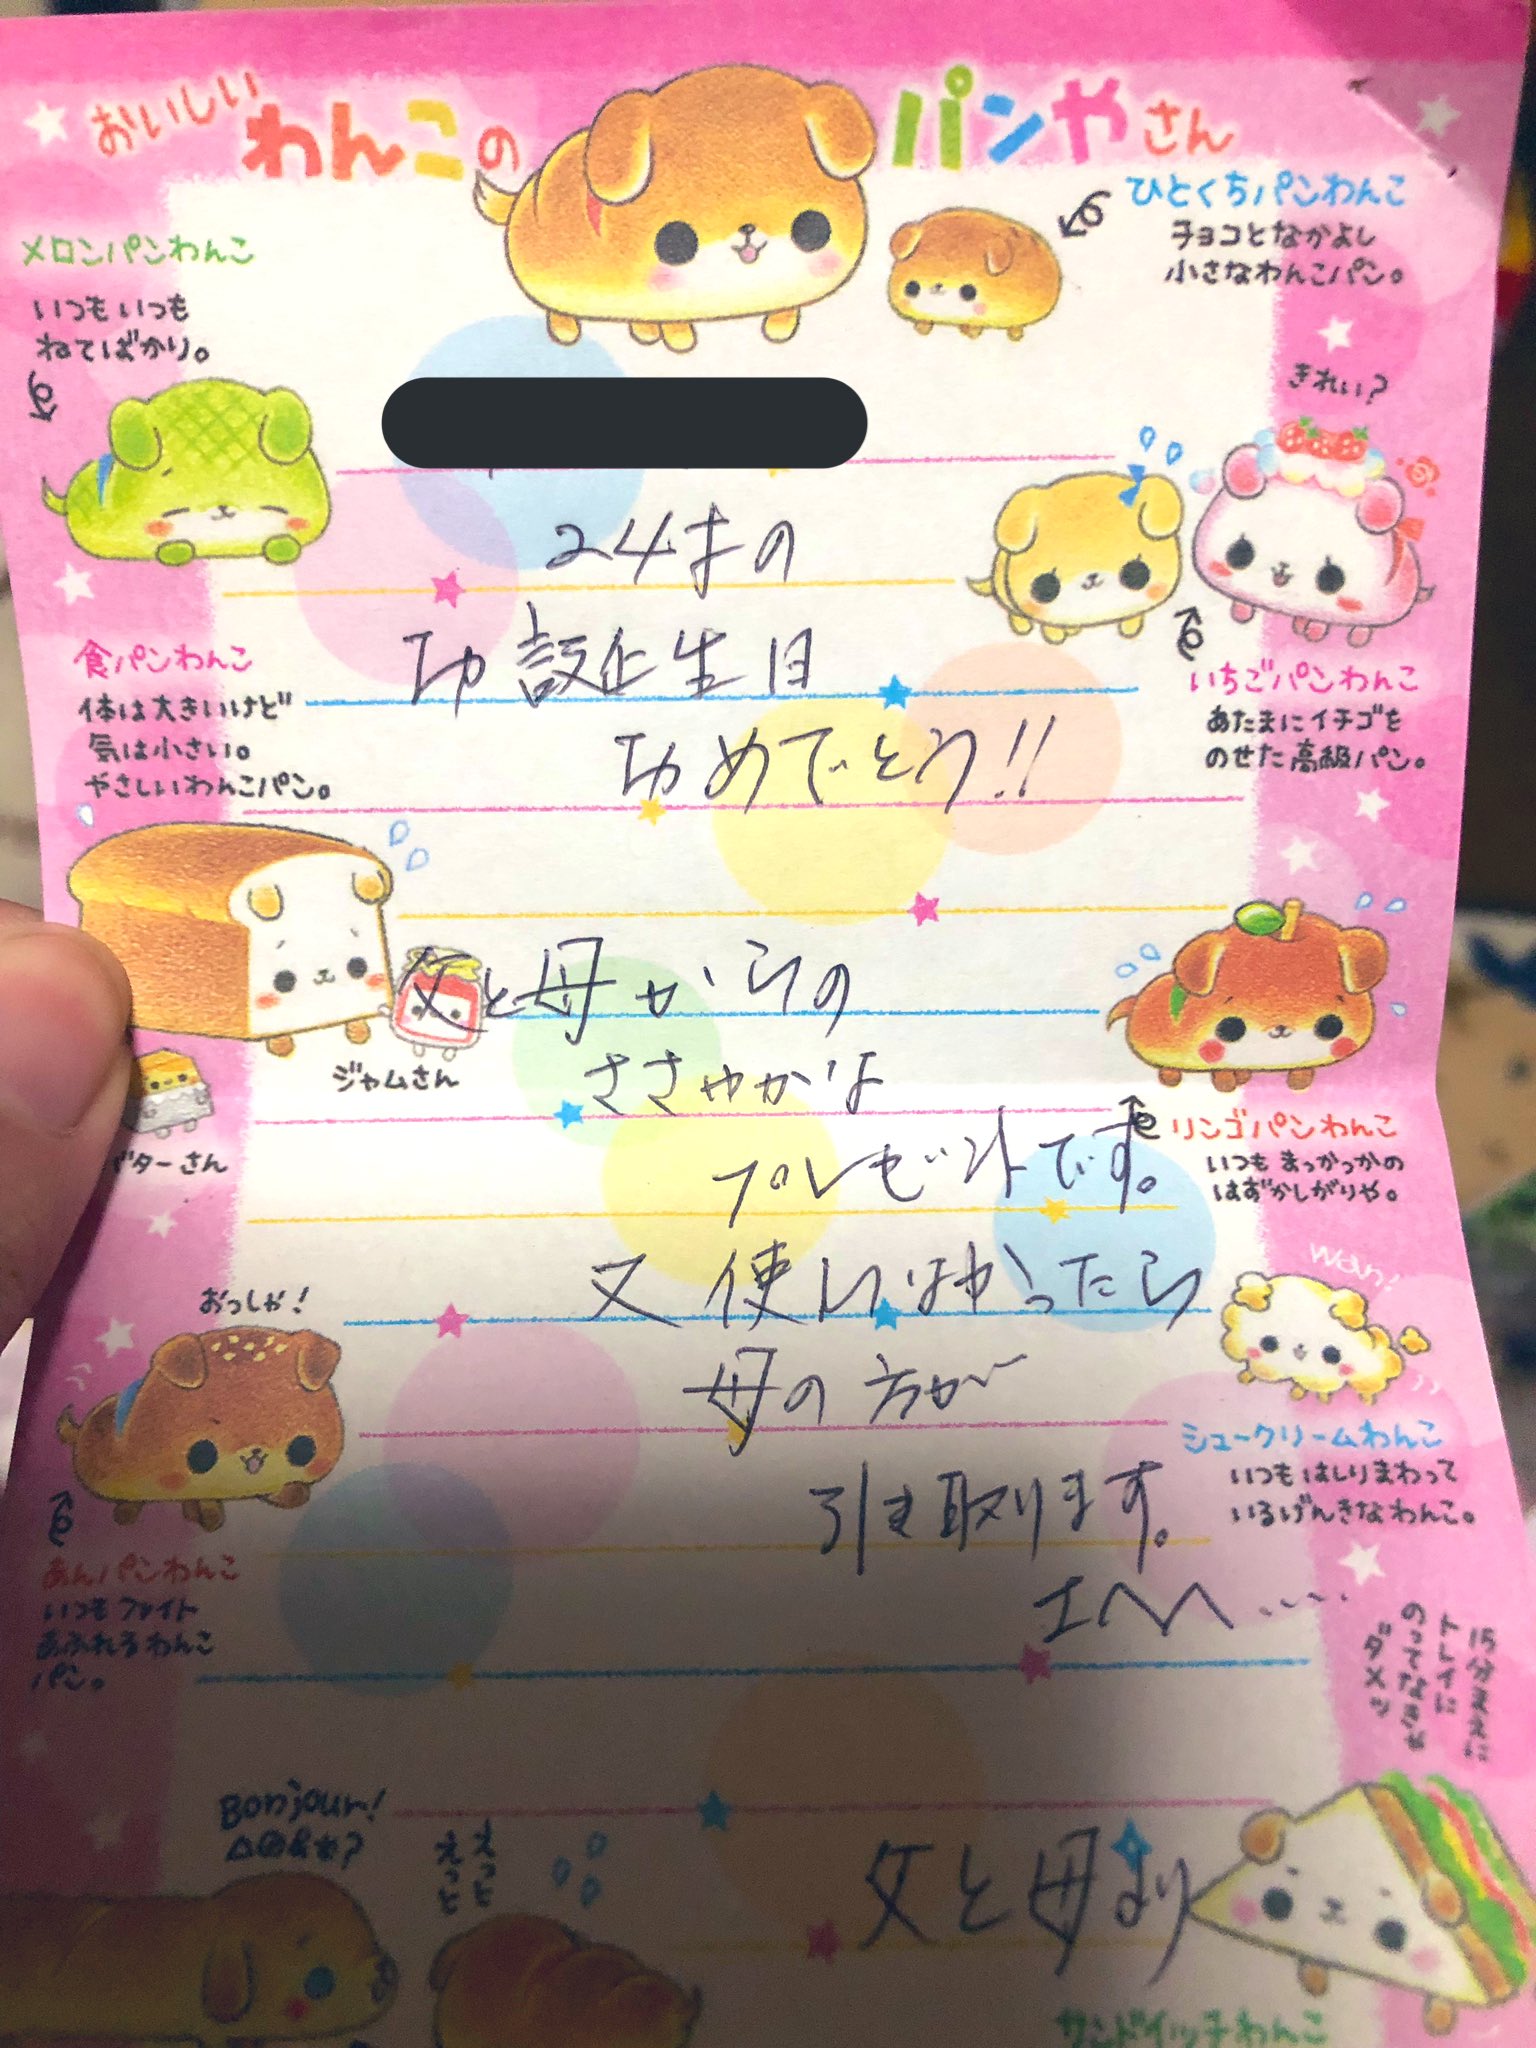 おいしい わんこの パンやさん
ひとくちパンわんこ
チョコとなかよし
小さなわんこパン。
メロンパンわんこ
いつもいつも
ねてばかり。
きれい?
24才の
お誕生日
おめでとう!!
食パンわんこ
体は大きいけど
気は小さい。
やさしいわんこパン。
いちごパンわんこ
あたまにイチゴを
のせた高級パン。
父と母からの
ささやかな
プレゼントです。
ジャムさん
バターさん
リンゴパンわんこ
いつもまっかっかの
はずかしがりや。
又使しなかったら
母の方が
引き取ります。
エヘヘ・・・・
おっしゃ!
Wan!
シュークリームわんこ
いつもはしりまわって
いるげんきなわんこ。
あんパンわんこ
いつもファイト
あふれるわんこ
パン。
15分まえに
トレイに
のってなきゃ
ダメッ
Bonjour!
えっと
えっと
父と母より
サンドイッチわんこ